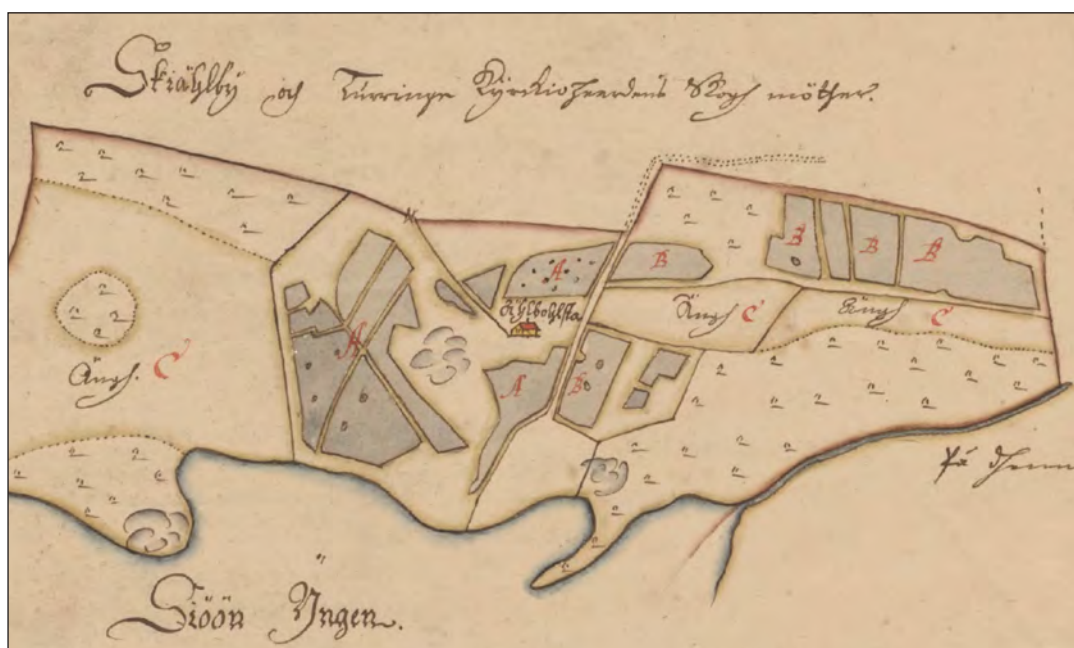 Skiählby och Turringe Kyrckioheerdens Skogh möther.
A
B
B
B
B
Ählbohlsta
Ängh C
Ängh C
A
Ängh. C
A
B
på dhenn
Siöön Yngen.